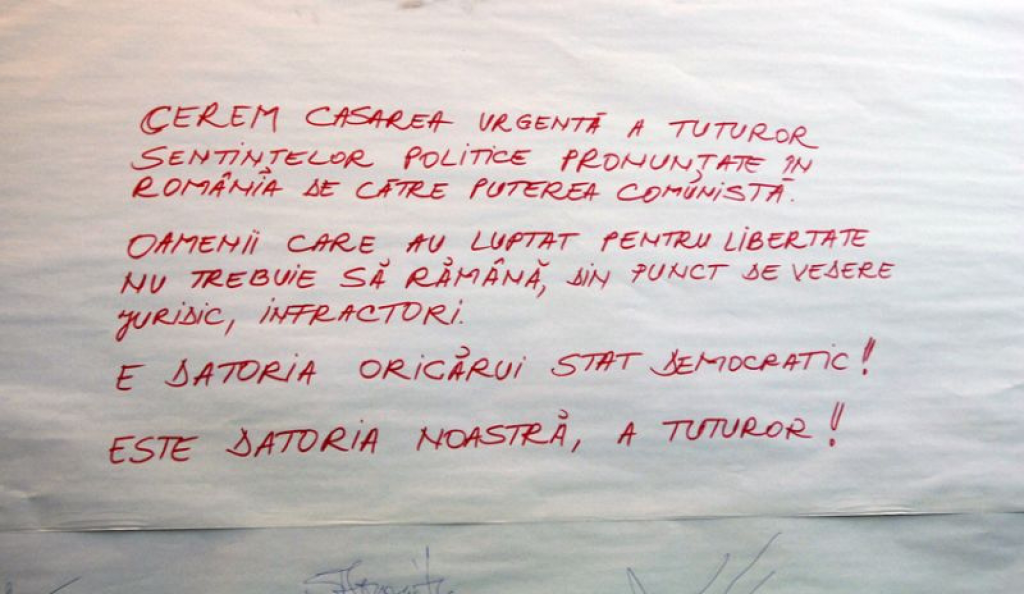 CEREM CASAREA URGENTĂ A TUTUROR
SENTINȚELOR POLITICE PRONUNȚATE ÎN
ROMÂNIA DE CĂTRE PUTEREA COMUNISTĂ.
OAMENII CARE AU LUPTAT PENTRU LIBERTATE
NU TREBUIE SĂ RĂMÂNĂ, DIN PUNCT DE VEDERE
JURIDIC, INFRACTORI.
E DATORIA ORICĂRUI STAT DEMOCRATIC!
ESTE DATORIA NOASTRĂ, A TUTUROR!